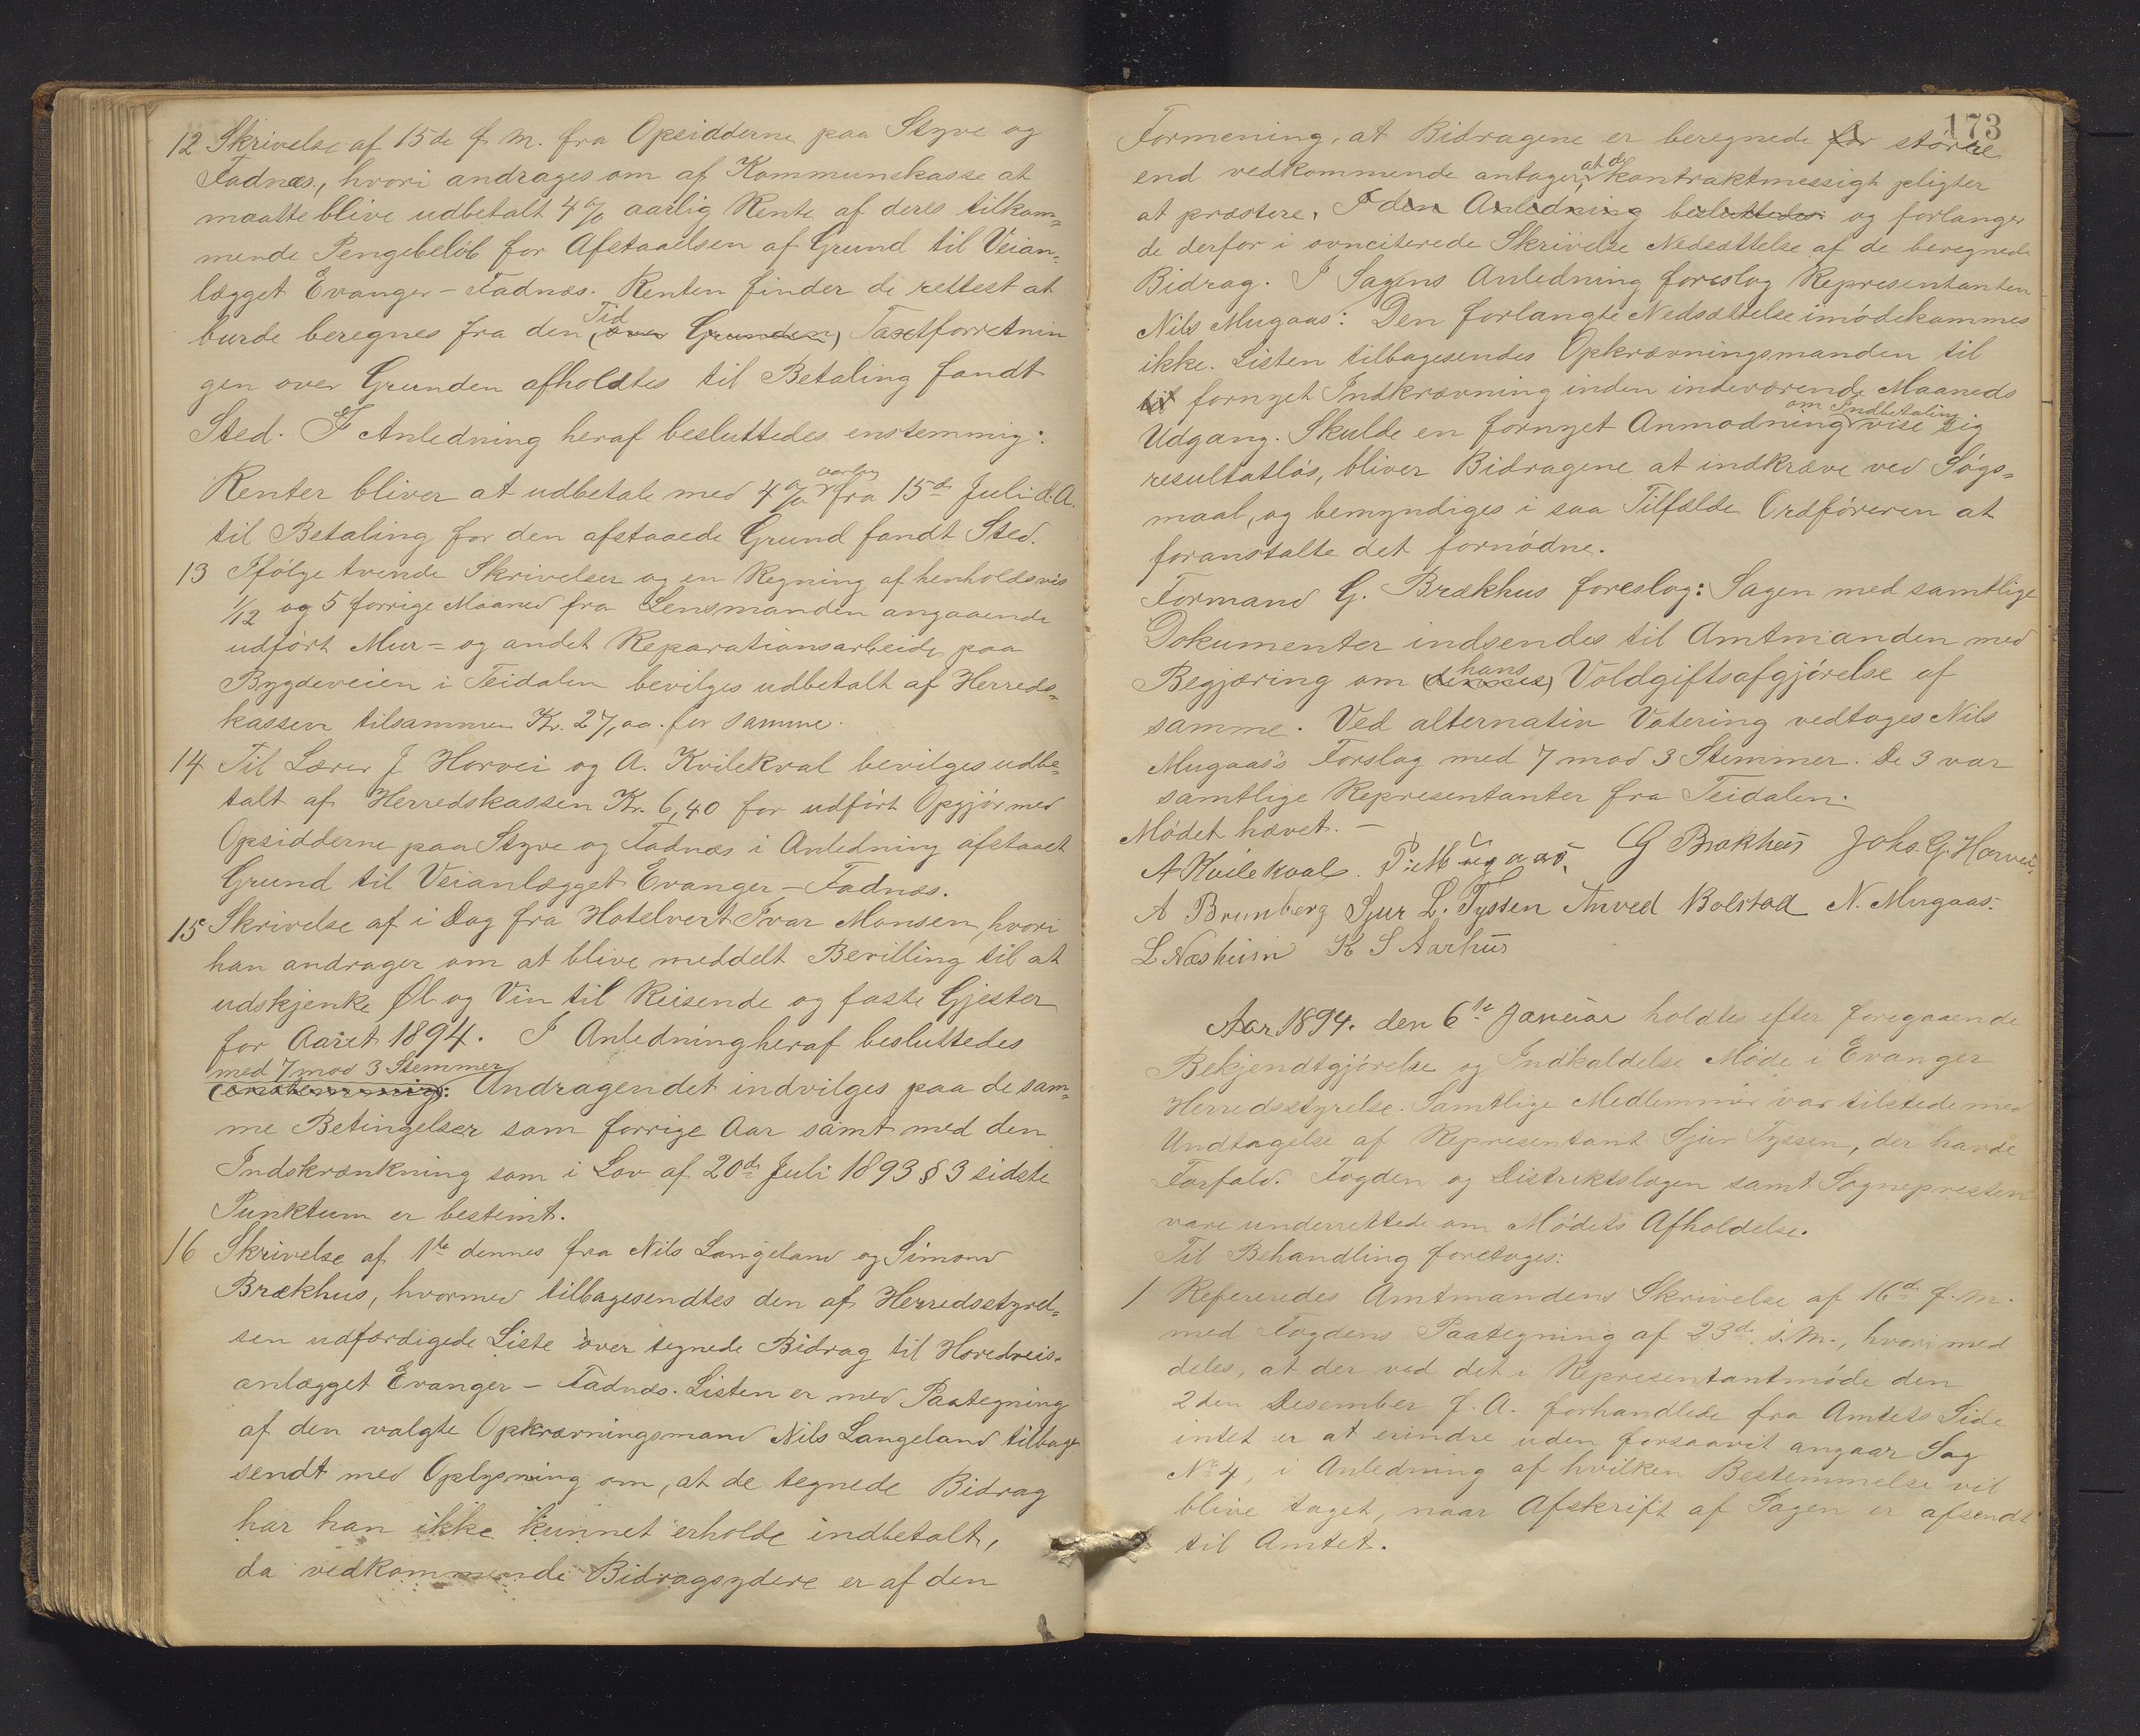 12 Skrivelse af 15de f. M. fra Opsidderne paa Styve og
Fadnæs, hvori andrages om af Kommunekasse at
maatte blive udbetalt 4 % aarlig Rente af deres tilkom-
mende Pengebeløb for Afstaaelsen af Grund til Veian-
lægget Evanger - Fadnæs. Renten finder de rettest at
burde beregnes fra den (over Grunden) Tid Taxtforretnin
gen over Grunden afholdtes til Betaling fandt
Sted. I Anledning heraf besluttedes enstemmig:
Renter bliver at udbetale med 4 % aarlig fra 15de Juli d. A.
til Betaling for den afstaaede Grund fandt Sted.
13 Ifølge tvende Skrivelser og en Regning af henholdsvis
1/12 og 5 forrige Maaned fra Lensmanden angaaende
udført Mur= og andet Reparationsarbeide paa
Bygdeveien i Teidalen bevilges udbetalt af Herreds-
kassen tilsammen Kr. 27,00 for samme.
14 Til Lærer J. Horvei og A. Kvilekval bevilges udbe-
talt af Herredskassen Kr. 6,40 for udført Opgjør med
Opsidderne paa Styve og Fadnæs i Anledning afstaaet
Grund til Veianlægget Evanger - Fadnæs.
15 Skrivelse af i Dag fra Hotelvert Ivar Monsen, hvori
han andrager om at blive meddelt Bevilling til at
udskjenke Øl og Vin til Reisende og faste Gjester
for Aaret 1894. I Anledning heraf besluttedes
med 7 mod 3 Stemmer
(enstemmig): Andragendet indvilges paa de sam-
me Betingelser som forrige Aar samt med den
Indskrænkning som i Lov af 20de Juli 1893 § 3 sidste
Punktum er bestemt.
16 Skrivelse af 1ste dennes fra Nils Langeland og Simond
Brækhus, hvormed tilbagesendtes den af Herredsstyrel-
sen udfærdigede Liste over tegnede Bidrag til Hovedveis-
anlægget Evanger - Fadnæs. Listen er med Paategning
af den valgte Opkrævningsmand Nils Langeland tilbage
sendt med Oplysning om, at de tegnede Bidrag
har han ikke kunnet erholde indbetalt,
da vedkommende Bidragsydere er af den
173
Formening, at Bidragene er beregnede for større
end vedkommende antager, at de kontraktmessigt pligter
at præstere. I den Anledning besluttedes og forlanger
de derfor i ovnciterede Skrivelse Nedsættelse af de beregnede
Bidrag. I Sagens Anledning foreslog Representanten
Nils Mugaas: Den forlangte Nedsættelse imødekommes
ikke. Listen tilbagesendes Opkrævningsmanden til
til fornyet Indkrævning inden indeværende Maaneds
Udgang. Skulde en fornyet Anmodning om Indbetaling vise sig
resultatløs, bliver Bidragene at indkræve ved Søgs-
maal, og bemyndiges i saa Tilfælde Ordføreren at
foranstalte det fornødne.
Formand G. Brækhus foreslog: Sagen med samtlige
Dokumenter indsendes til Amtmanden med
Begjæring om (dennes) hans Voldgiftsafgjørelse af
samme. Ved alternativ Votering vedtoges Nils
Mugaas's Forslag med 7 mod 3 Stemmer. De 3 var
samtlige Representanter fra Teidalen.
Mødet hævet. —
A Kvilekvaal. P. Mugaas. G Brækhus Johs. G. Horvei.
A Brunberg Sjur L. Tyssen Anved Bolstad N. Mugaas.
L Næsheim K S Aarhus
Aar 1894. den 6te Januar holdtes efter foregaaende
Bekjendtgjørelse og Indkaldelse Møde i Evanger
Herredsstyrelse. Samtlige Medlemmer var tilstede med
Undtagelse af Representant Sjur Tyssen, der havde
Forfald. Fogden og Distriktslægen samt Sognepresten
vare underrettede om Mødets Afholdelse.
Til Behandling foretoges:
1 Refereredes Amtmandens Skrivelse af 16de f. M.
med Fogdens Paategning af 23de s. M., hvori med
deles, at der ved det i Representantmøde den
2den Desember f. A. forhandlede fra Amtets Side
intet er at erindre uden forsaavit angaar Sag
No 4, i Anledning af hvilken Bestemmelse vil
blive taget, naar Afskrift af Sagen er afsendt
til Amtet.